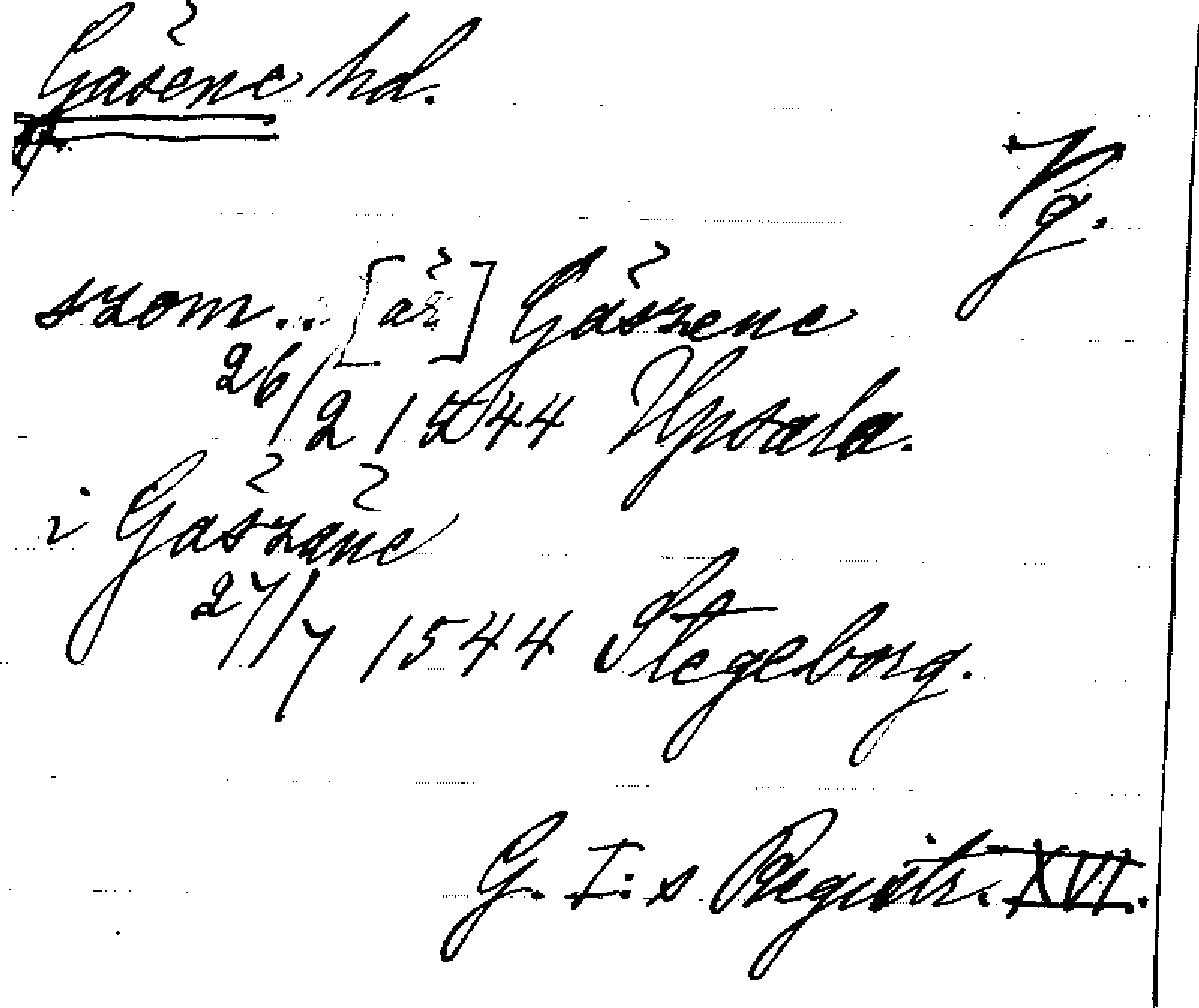 Gäsene hd.
Vg.
szom.. [är] Gäszene
26/2 1544 Upsala.
i Gäszäne
27/7 1544 Stegeborg.
G. I:s Registr. XVI.